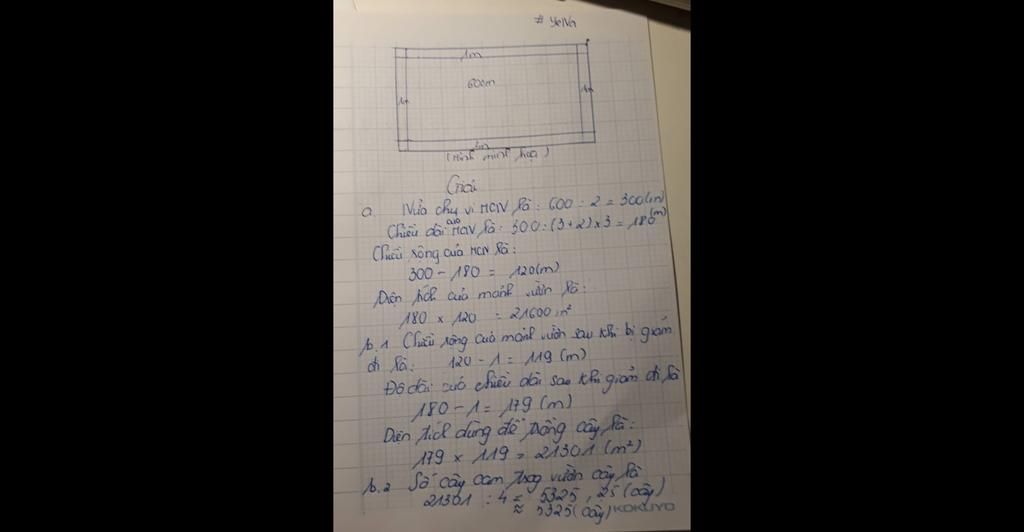 # YeNa
1m
600m
1m
1m
1m
(Hình minh họa)
Giải
a. Nửa chu vi HCN là: 600 : 2 = 300 (m)
Chiều dài của HCN là: 300 : (3+2) x 3 = 180 (m)
Chiều rộng của HCN là:
300 - 180 = 120 (m)
Diện tích của mảnh vườn là:
180 x 120 = 21600 m²
b.1 Chiều rộng của mảnh vườn sau khi bị giảm
đi là: 120 - 1 = 119 (m)
Độ dài của chiều dài sau khi giảm đi là
180 - 1 = 179 (m)
Diện tích dùng để trồng cây là:
179 x 119 = 21301 (m²)
b.2 Số cây cam trong vườn cây là
21301 : 4 = 5325,25 (cây)
≈ 5325 (cây)
KOKUYO